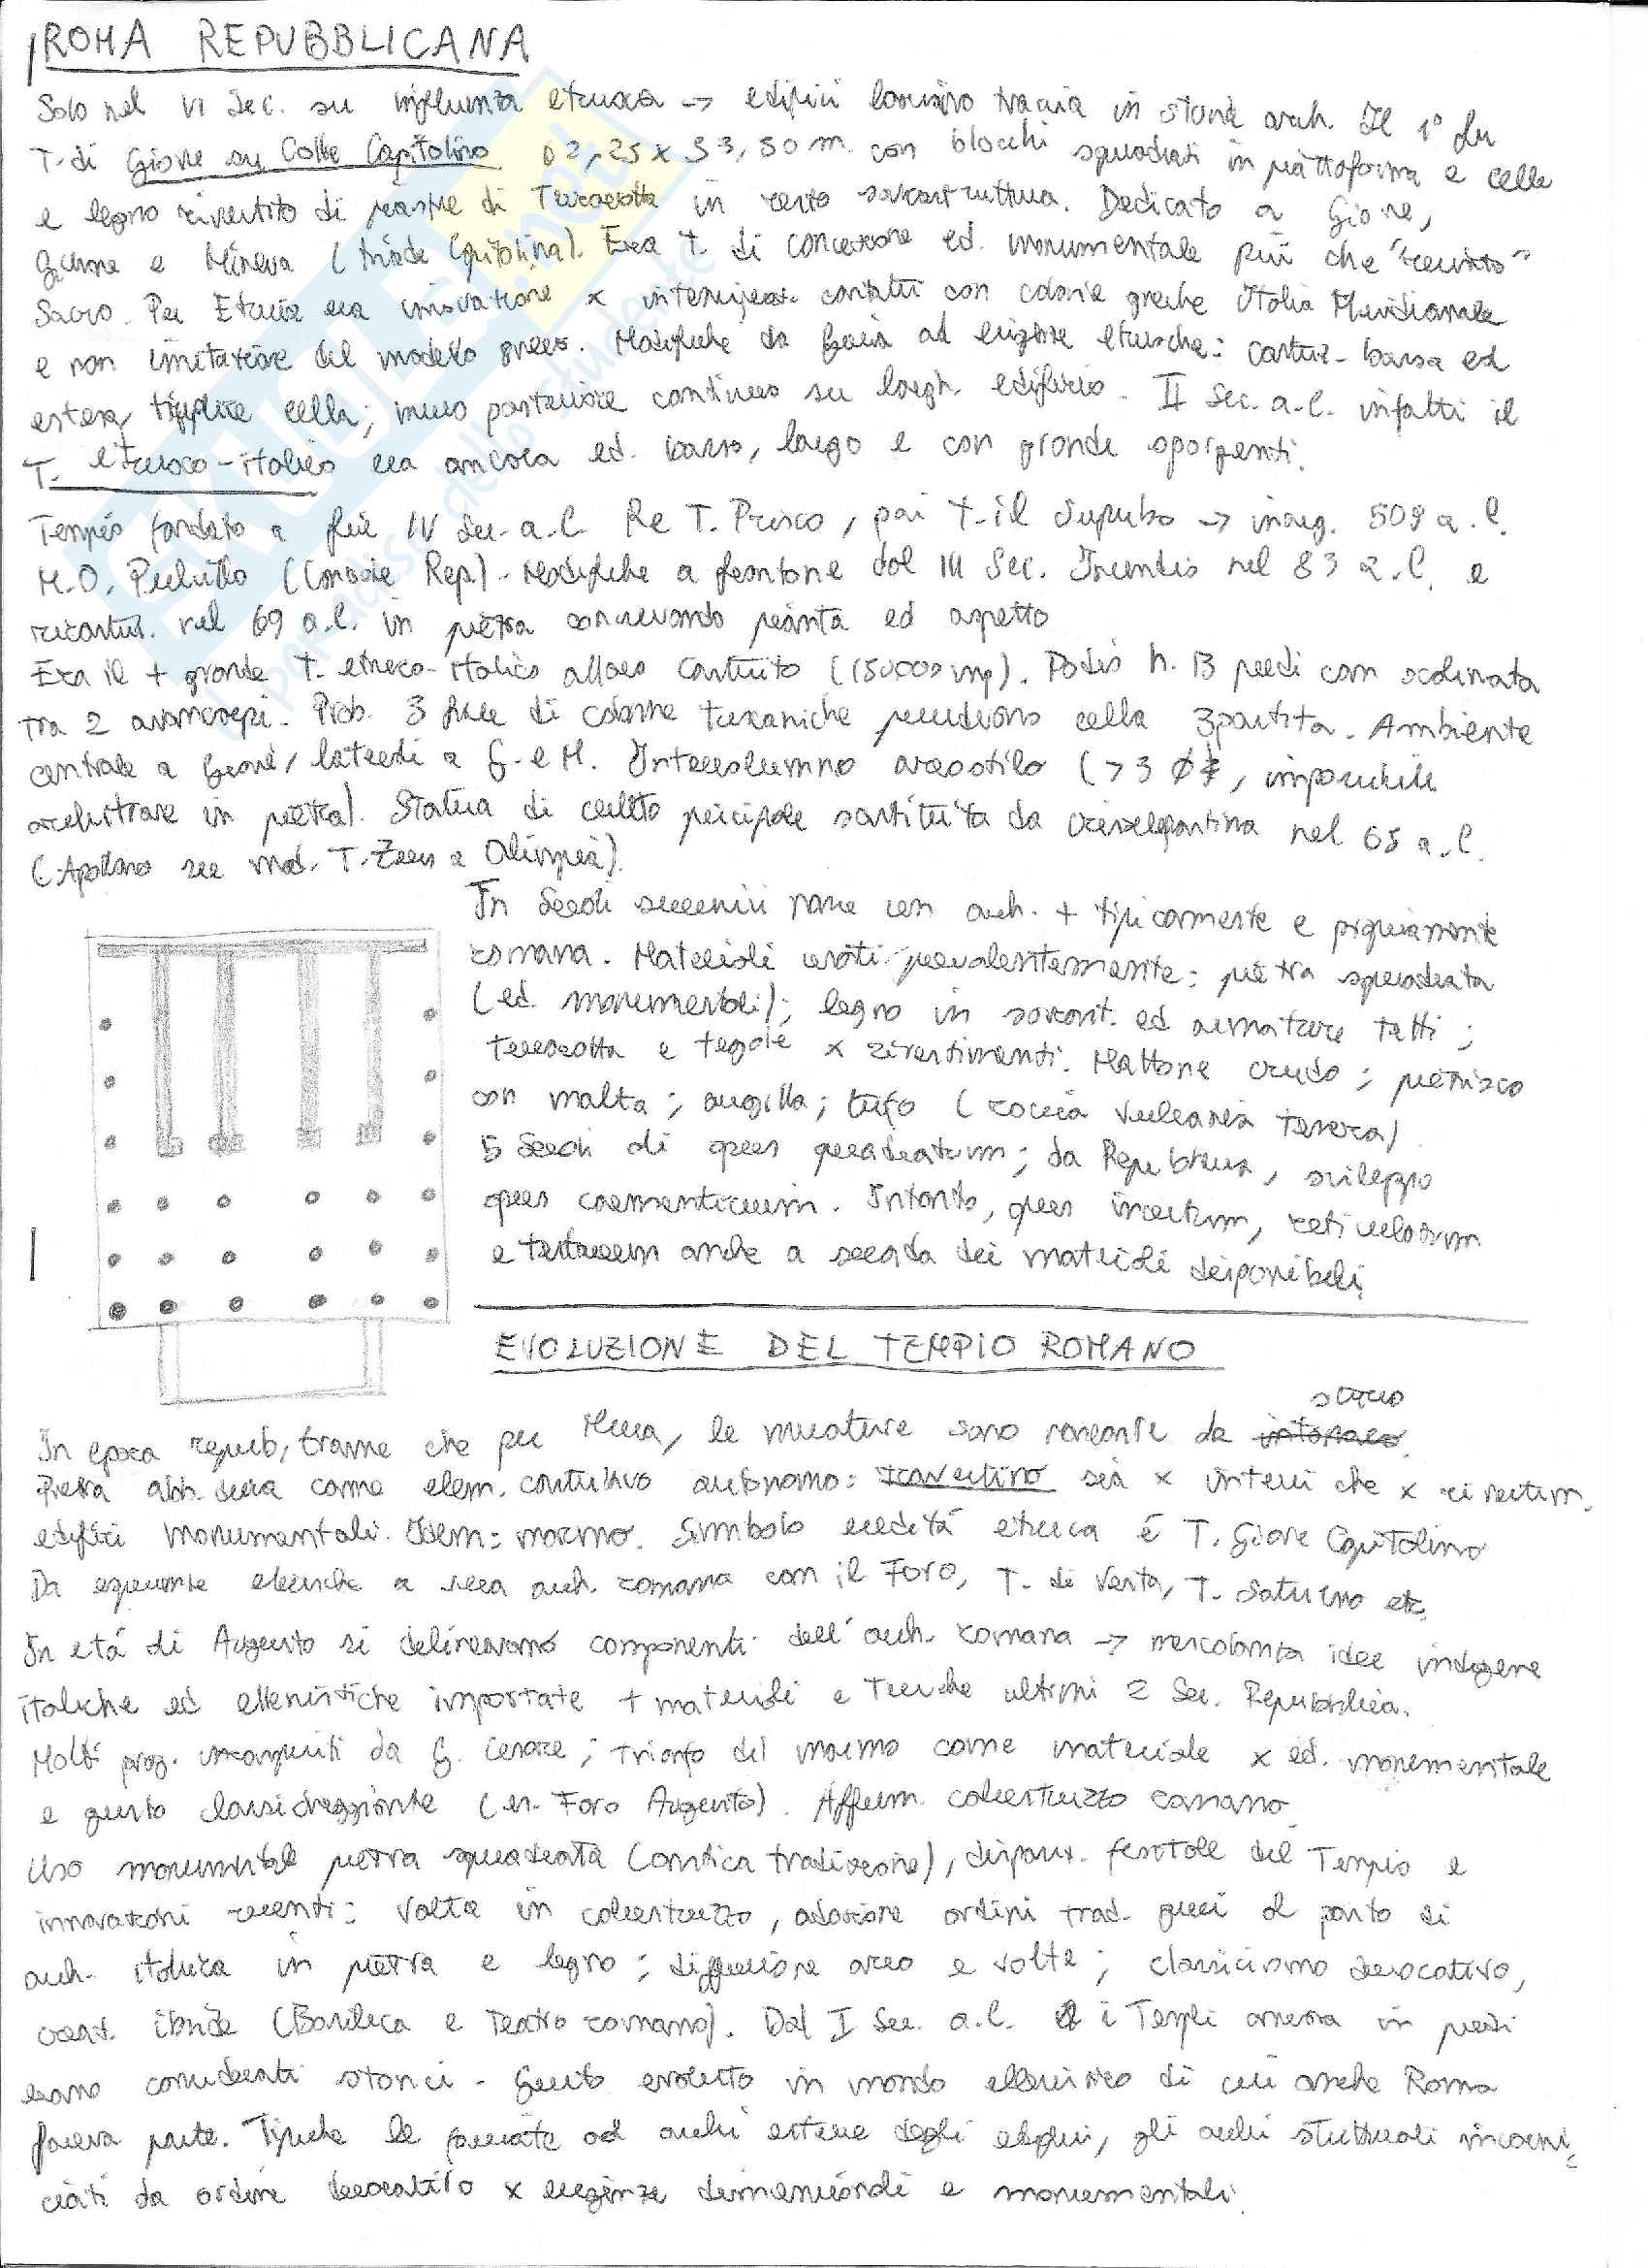 ROMA REPUBBLICANA
Solo nel VI sec. su influenza etrusca → edifici lasciano traccia in storia arch. Il 1° fu
T. di Giove su Colle Capitolino 62,25 x 53,50 m. con blocchi squadrati in piattaforma e celle
e legno rivestito di piastre di Terracotta in resto sovrastruttura. Dedicato a Giove,
Giunone e Minerva (triade Capitolina). Era T. di concezione ed. monumentale più che "recinto"
Sacro. Per Etruria era innovazione x contatti con colonie greche Italia Meridionale
e non imitazione del modello greco. Modifiche da fare ad esigenze etrusche: costruz. bassa ed
estesa, triplice cella; muro posteriore continuo su largh. edificio. II Sec. a.C. infatti il
T. etrusco-italico era ancora ed. basso, largo e con gronde sporgenti.
Tempio fondato a fine IV Sec. a.C. Re T. Prisco, poi T. il Superbo → inaug. 509 a.C.
M.O. Pulvillo (Console Rep.). Modifiche a frontone dal III Sec. Incendio nel 83 a.C. e
ricostruz. nel 69 a.C. in pietra conservando pianta ed aspetto
Era il + grande T. etrusco-italico allora costruito Podio h. 13 piedi con scalinata
tra 2 avancorpi. Prob. 3 file di colonne tuscaniche precedevano cella 3partita. Ambiente
centrale a Giove, laterali a G. e M. Intercolumnio areostilo (>3 Ø, impossibile
architrave in pietra). Statua di culto principale sostituita da crisoelefantina nel 65 a.C.
(Apollonio su mod. T. Zeus a Olimpia).
In Secoli successivi nasce un arch. + tipicamente e propriamente
romana. Materiali usati prevalentemente: pietra squadrata
(ed. monumentali); legno in sovrast. ed armature tetti;
terracotta e tegole x rivestimenti. Mattone crudo; pietrisco
con malta; argilla; tufo (roccia vulcanica tenera)
5 Secoli di opus quadratum; da Repubblica, sviluppo
opus caementicium. Intanto, opus incertum, reticulatum
e testaceum anche a seconda dei materiali disponibili.
EVOLUZIONE DEL TEMPIO ROMANO
stucco
In epoca repub, tranne che per mura, le murature sono nascoste da intonaco.
Pietra abb. usata come elem. costruttivo autonomo: travertino sia x interni che x rivestim.
edifici monumentali. Idem: marmo. Simbolo eredità etrusca è T. Giove Capitolino
Da esperienze etrusche a vera arch. romana con il Foro, T. di Vesta, T. Saturno etc.
In età di Augusto si delineavano componenti dell'arch. romana → mescolanza idee indigene
italiche ed ellenistiche importate + materiali e tecniche ultimi 2 Sec. Repubblica.
Molti prog. incompiuti da G. Cesare; trionfo del marmo come materiale x ed. monumentale
e gusto classicheggiante (es. Foro Augusto). Afferm. calcestruzzo romano.
Uso monumentale pietra squadrata (antica tradizione), disposiz. frontale del Tempio e
innovazioni recenti: volta in calcestruzzo, adozione ordini trad. greci al posto di
arch. italica in pietra e legno; diffusione arco e volta; classicismo decorativo,
creaz. ibride (Basilica e Teatro romano). Dal I Sec. a.C. i Templi ancora in piedi
erano considerati storici. Gusto evoluto in mondo ellenistico di cui anche Roma
faceva parte. Tipiche le facciate ad archi esterne degli edifici, gli archi strutturali incorni-
ciati da ordine decorativo x esigenze dimensionali e monumentali.